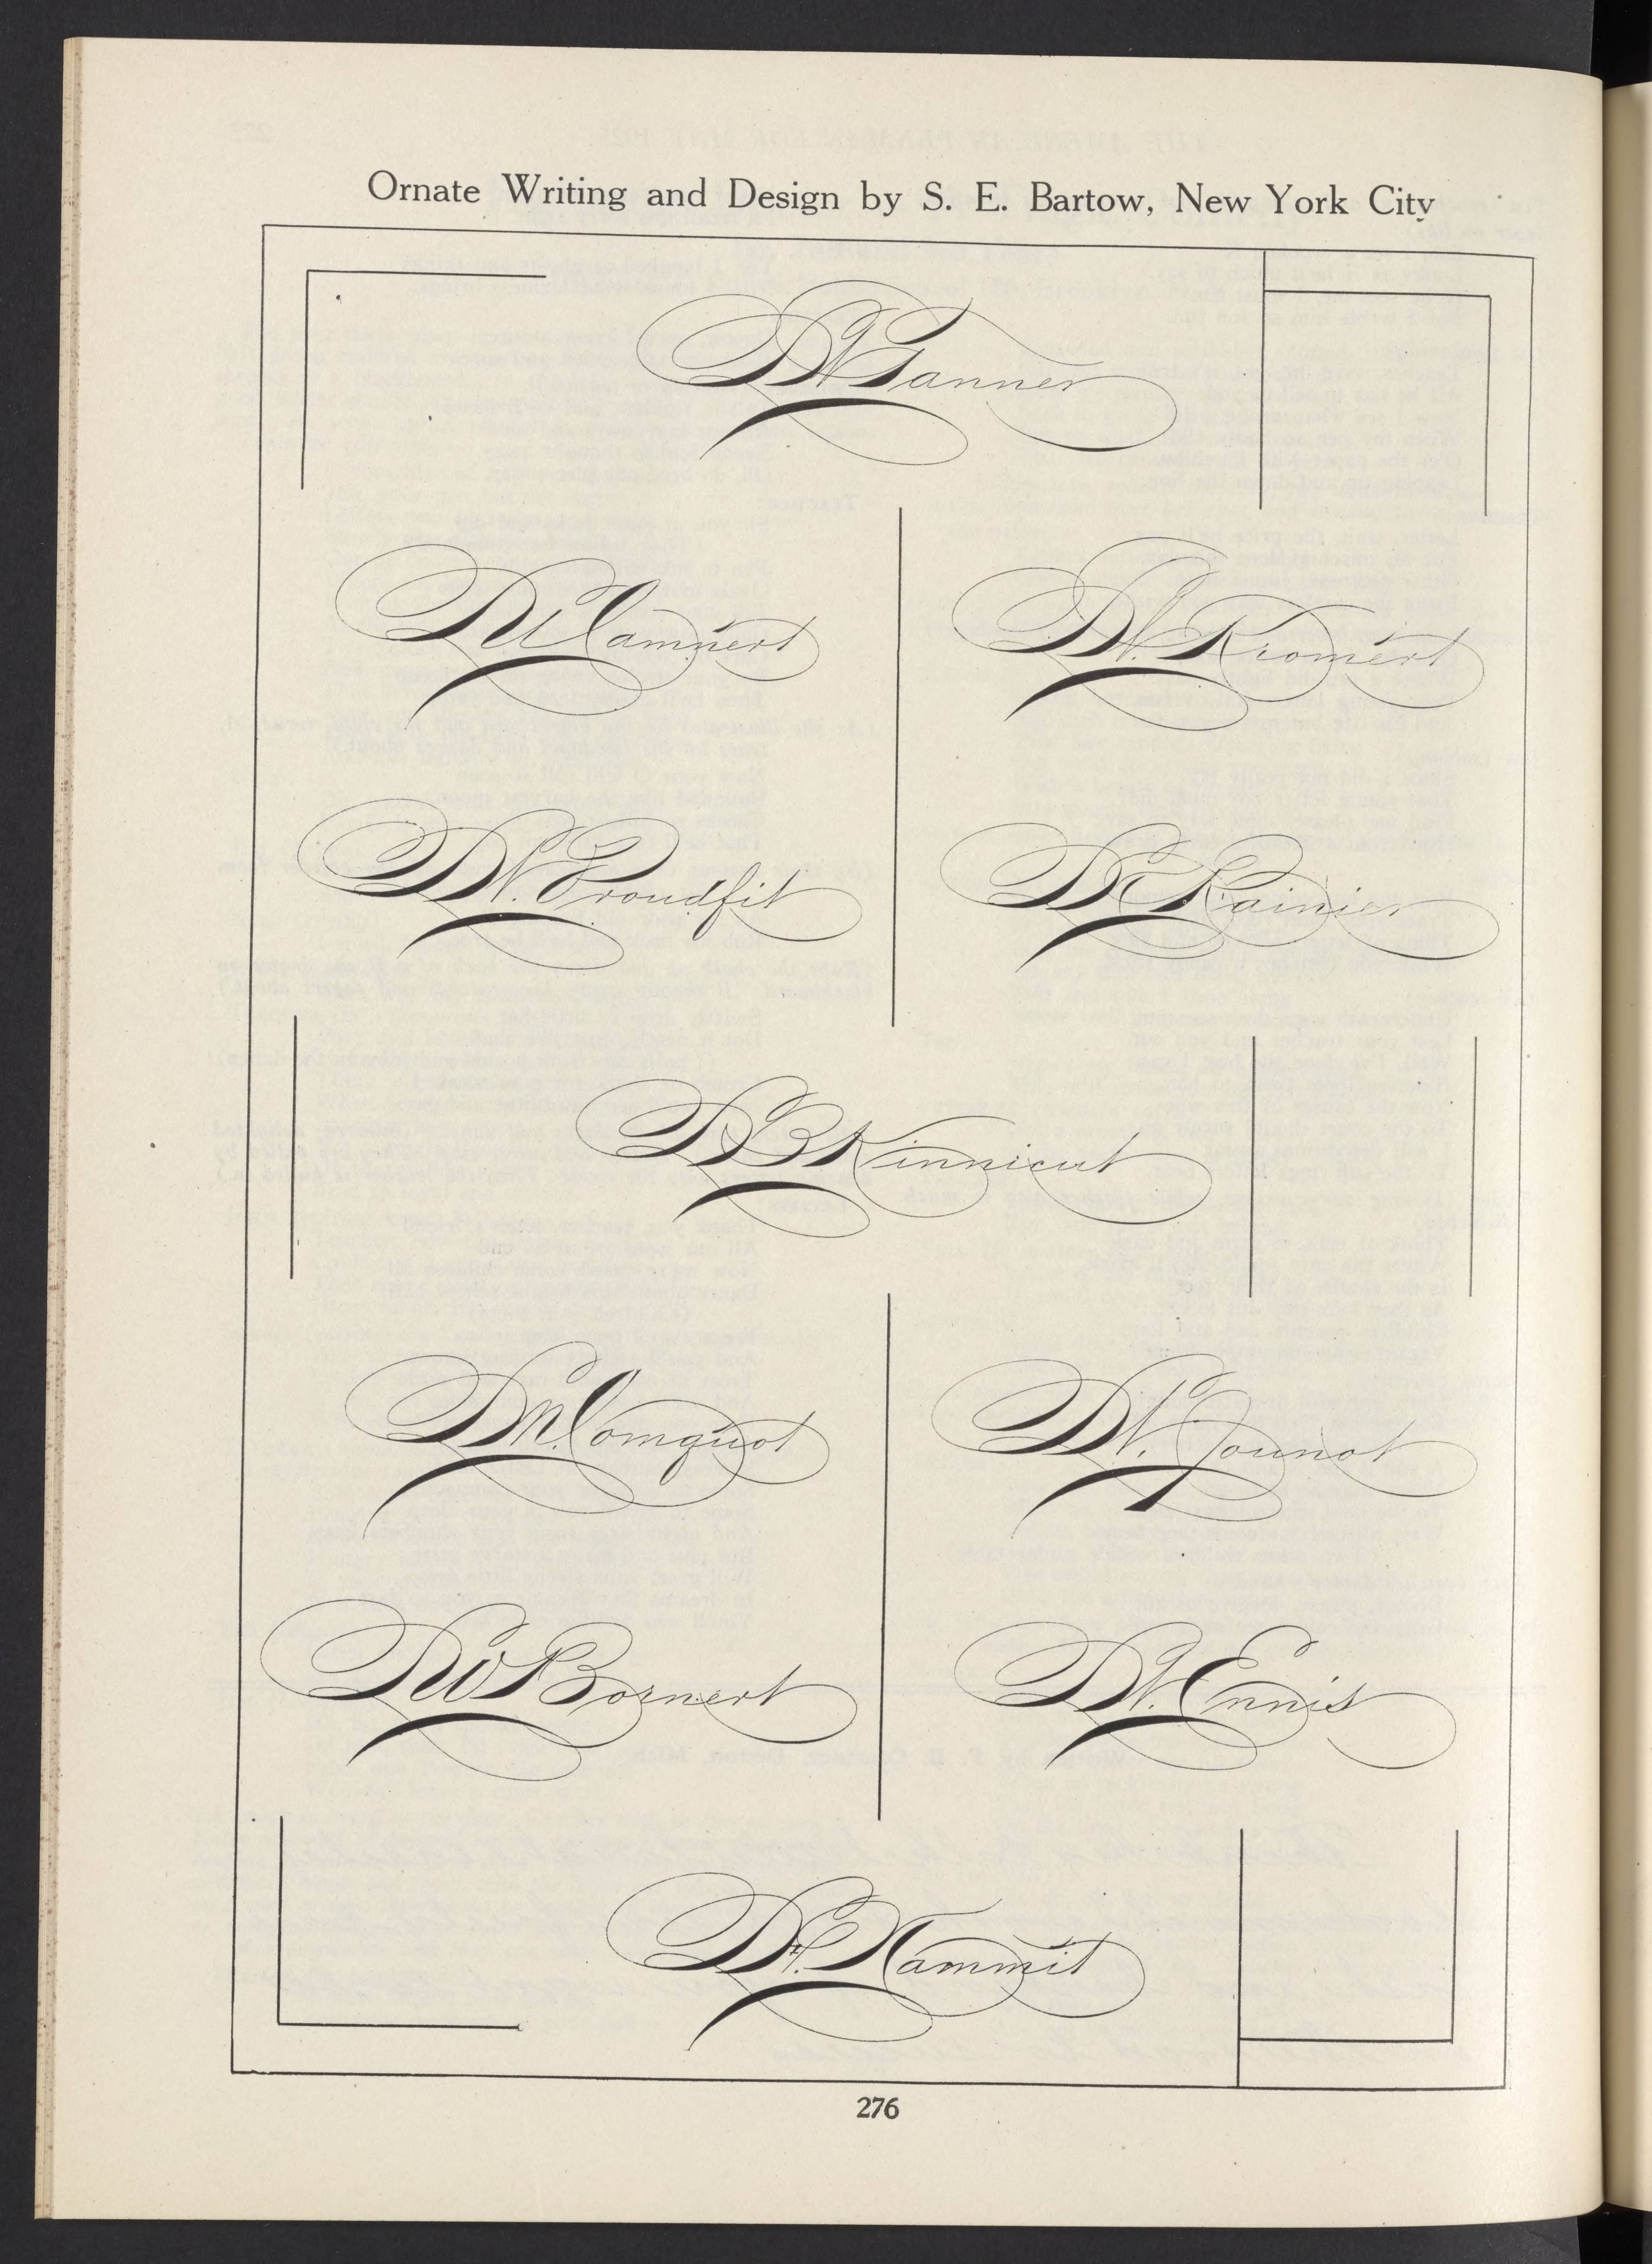 Ornate Writing and Design by S. E. Bartow, New York City
D. N. Tanner
D. U. Camnert
D. N. Kromert
D. N. Proudfit
D. C. Rainier
D. B. Kinnicut
D. N. Comquot
D. N. Jounot
D. W. Bornert
D. N. Ennis
D. H. Hammit
276